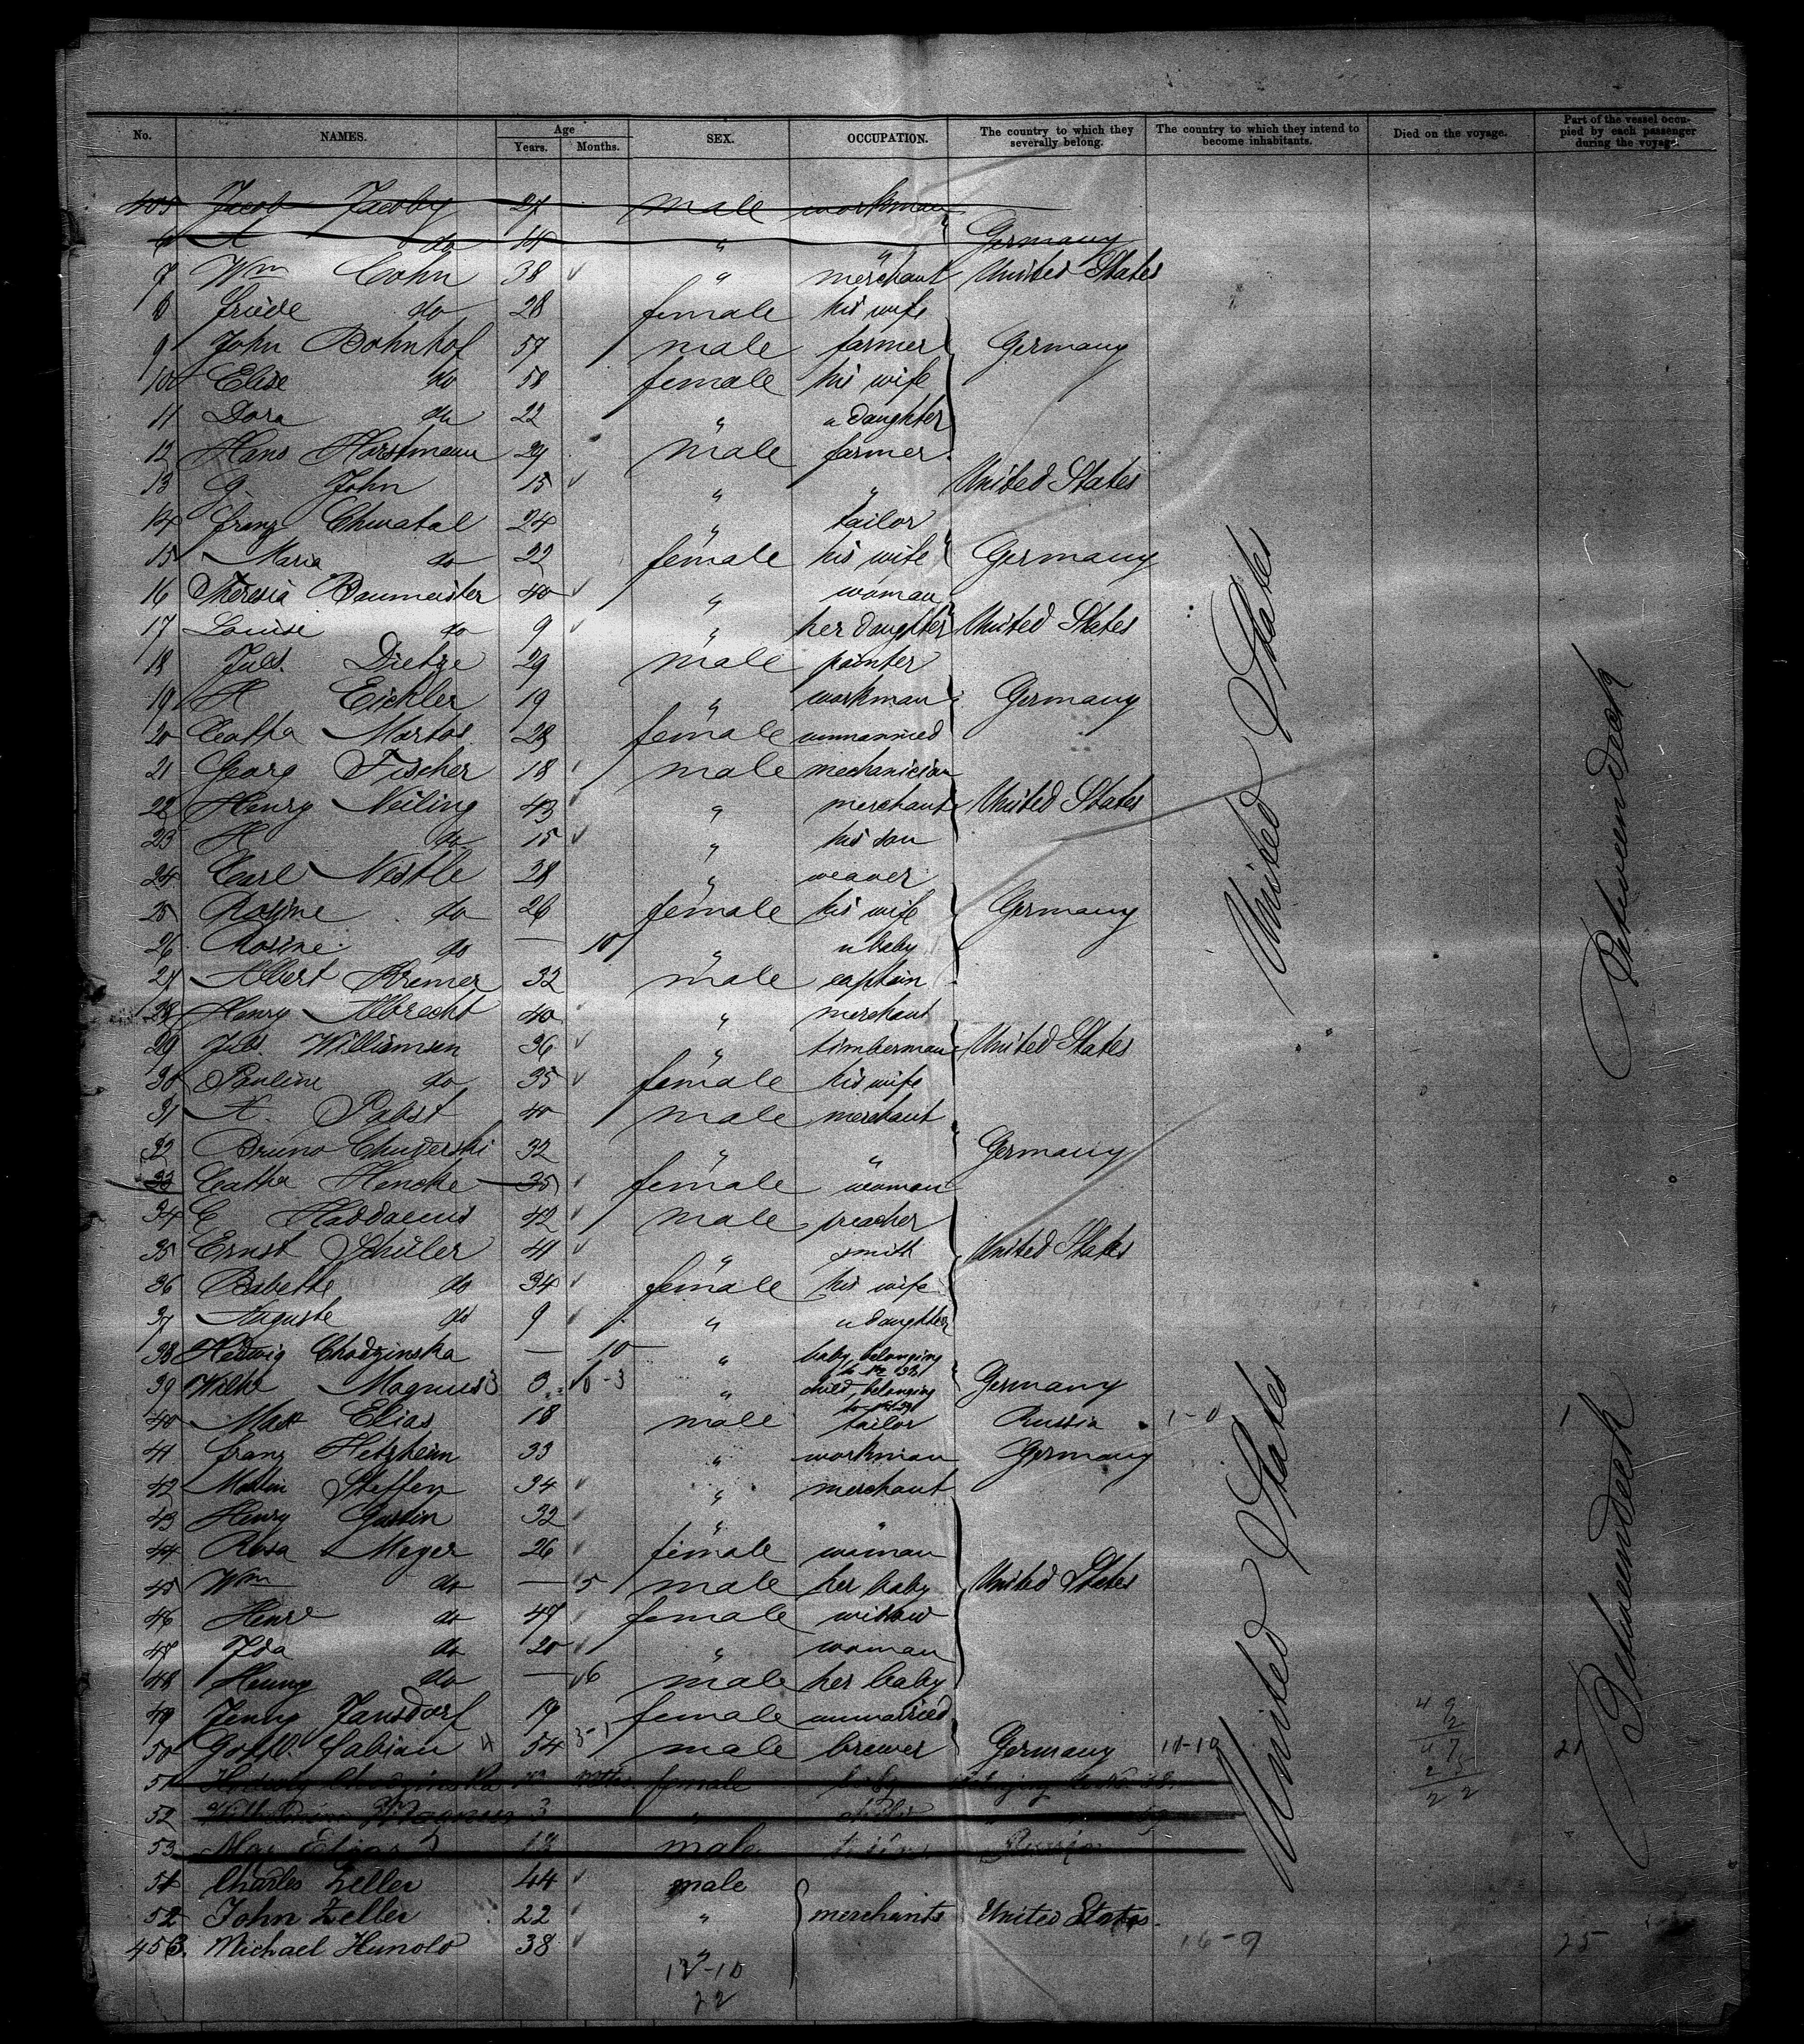 No. NAMES. Age Years. Months. SEX. OCCUPATION. The country to which they severally belong. The country to which they intend to become inhabitants. Died on the voyage. Part of the vessel occupied by each passenger during the voyage.
405 Jacob Jacoby 27 male workman
6 A do 14 " " Germany
7 Wm Cohn 38 " merchant United States
8 Friede do 28 female his wife
9 John Bohnhof 57 male farmer Germany
10 Elise do 58 female his wife
11 Dora do 22 " " daughter
12 Hans Horstmann 29 male farmer
13 G. John 15 " " United States
14 Franz Chwatal 24 " tailor
15 Maria do 22 female his wife Germany
16 Theresia Baumeister 40 " woman
17 Louise do 9 " her daughter United States
18 Juls. Dietze 29 male painter
19 H Eickler 19 " workman Germany
20 Catha Martos 28 female unmarried
21 Georg Fischer 18 male mechanician
22 Henry Neiling 43 " merchant United States
23 H do 15 " his son
24 Carl Nestle 38 " weaver
25 Rosine do 26 female his wife Germany
26 Rosine do — 10 " " baby
27 Albert Kremer 32 male captain
28 Henry Albrecht 40 " merchant
29 Juls. Williamsen 36 " timberman United States
30 Pauline do 35 female his wife
31 N. Pabst 40 male merchant
32 Bruno Chuderski 32 " " Germany
33 Catha Hencke 35 female woman
34 C Haddaeus 42 male preacher
35 Ernst Schüler 41 " smith United States
36 Babette do 34 female his wife
37 Auguste do 9 " " daughter
38 Hedwig Chodzinska — 10 " baby, belonging
39 Wilhe Magnus 3 " child belonging Germany
40 Max Elias 18 male tailor Russia
41 Franz Hetzheim 33 " workman Germany
42 Martin Steffen 34 " merchant
43 Henry Gustin 32 " "
44 Rosa Meyer 26 female woman
45 Wm do — 5 male her baby United States
46 Henre do 47 female widow
47 Ida do 20 " woman
48 Henry do — 6 male her baby
49 Jenny Jansdorf 19 female unmarried
50 Gottl. Fabian 54 male brewer Germany 10-10
51 Hedwig Chodzinska female baby
52 Magnus 3 " child
53 Max Elias 18 male Russia
51 Charles Zeller 44 male
52 John Zeller 22 " merchants United States.
453. Michael Hunold 38 " 16-9 25
12-10
22
United States
United States
Betweendeck
Betweendeck